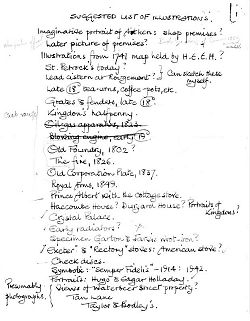 SUGGESTED LIST OF ILLUSTRATIONS.
Imaginative portrait of shop premises?
Later picture of premises?
Illustrations from 1741 map held by H.E.C.H.?
St. Petrock's today?
Lead cistern or fragment?
Can sketch these myself.
Late 18th tea-urns, coffee-pots, etc.
Grates & fenders, late 18th.
Kingdon's halfpenny.
Old Foundry, 1802?
The fire, 1826.
Old Corporation Plate, 1837.
Royal Arms, 1849.
Prince Albert with the cottage stove.
Haccombe House? Portraits of Kingdons?
Crystal Palace.
Early radiators?
Specimen Garton & Jarvis
"Exeter" & "Rectory" stoves: American stove?
Check dates.
Symbols: "Semper Fidelis" - 1914: 1942.
Portraits: Hugo & Edgar Holladay?
Views of Waterbeer Street property?
Tan Lane
Taylor & Bodley's.
Presumably photographs.